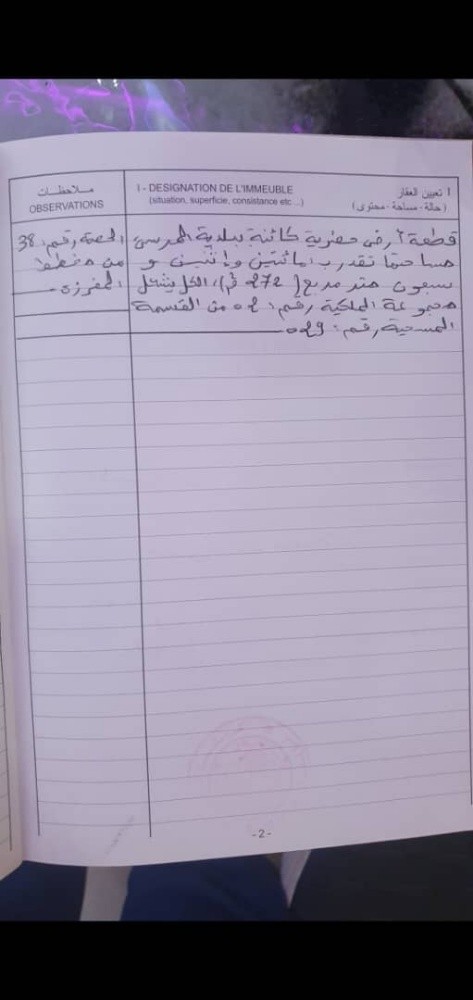 ملاحظات
OBSERVATIONS
I - DESIGNATION DE L'IMMEUBLE
(situation, superficie, consistance etc ...)
I تعيين العقار
(حالة - مساحة - محتوى)
قطعة أرض حضرية كائنة ببلدية المرسى
مساحتها تقدر بـ مائتين وإثنين و
سبعون متر مربع (272 م²)، الكل يشكل
مجموعة الملكية رقم: 02 من القسمة
المسحية رقم: 029
الحصة رقم: 38
من مخطط
المفرزة
-2-